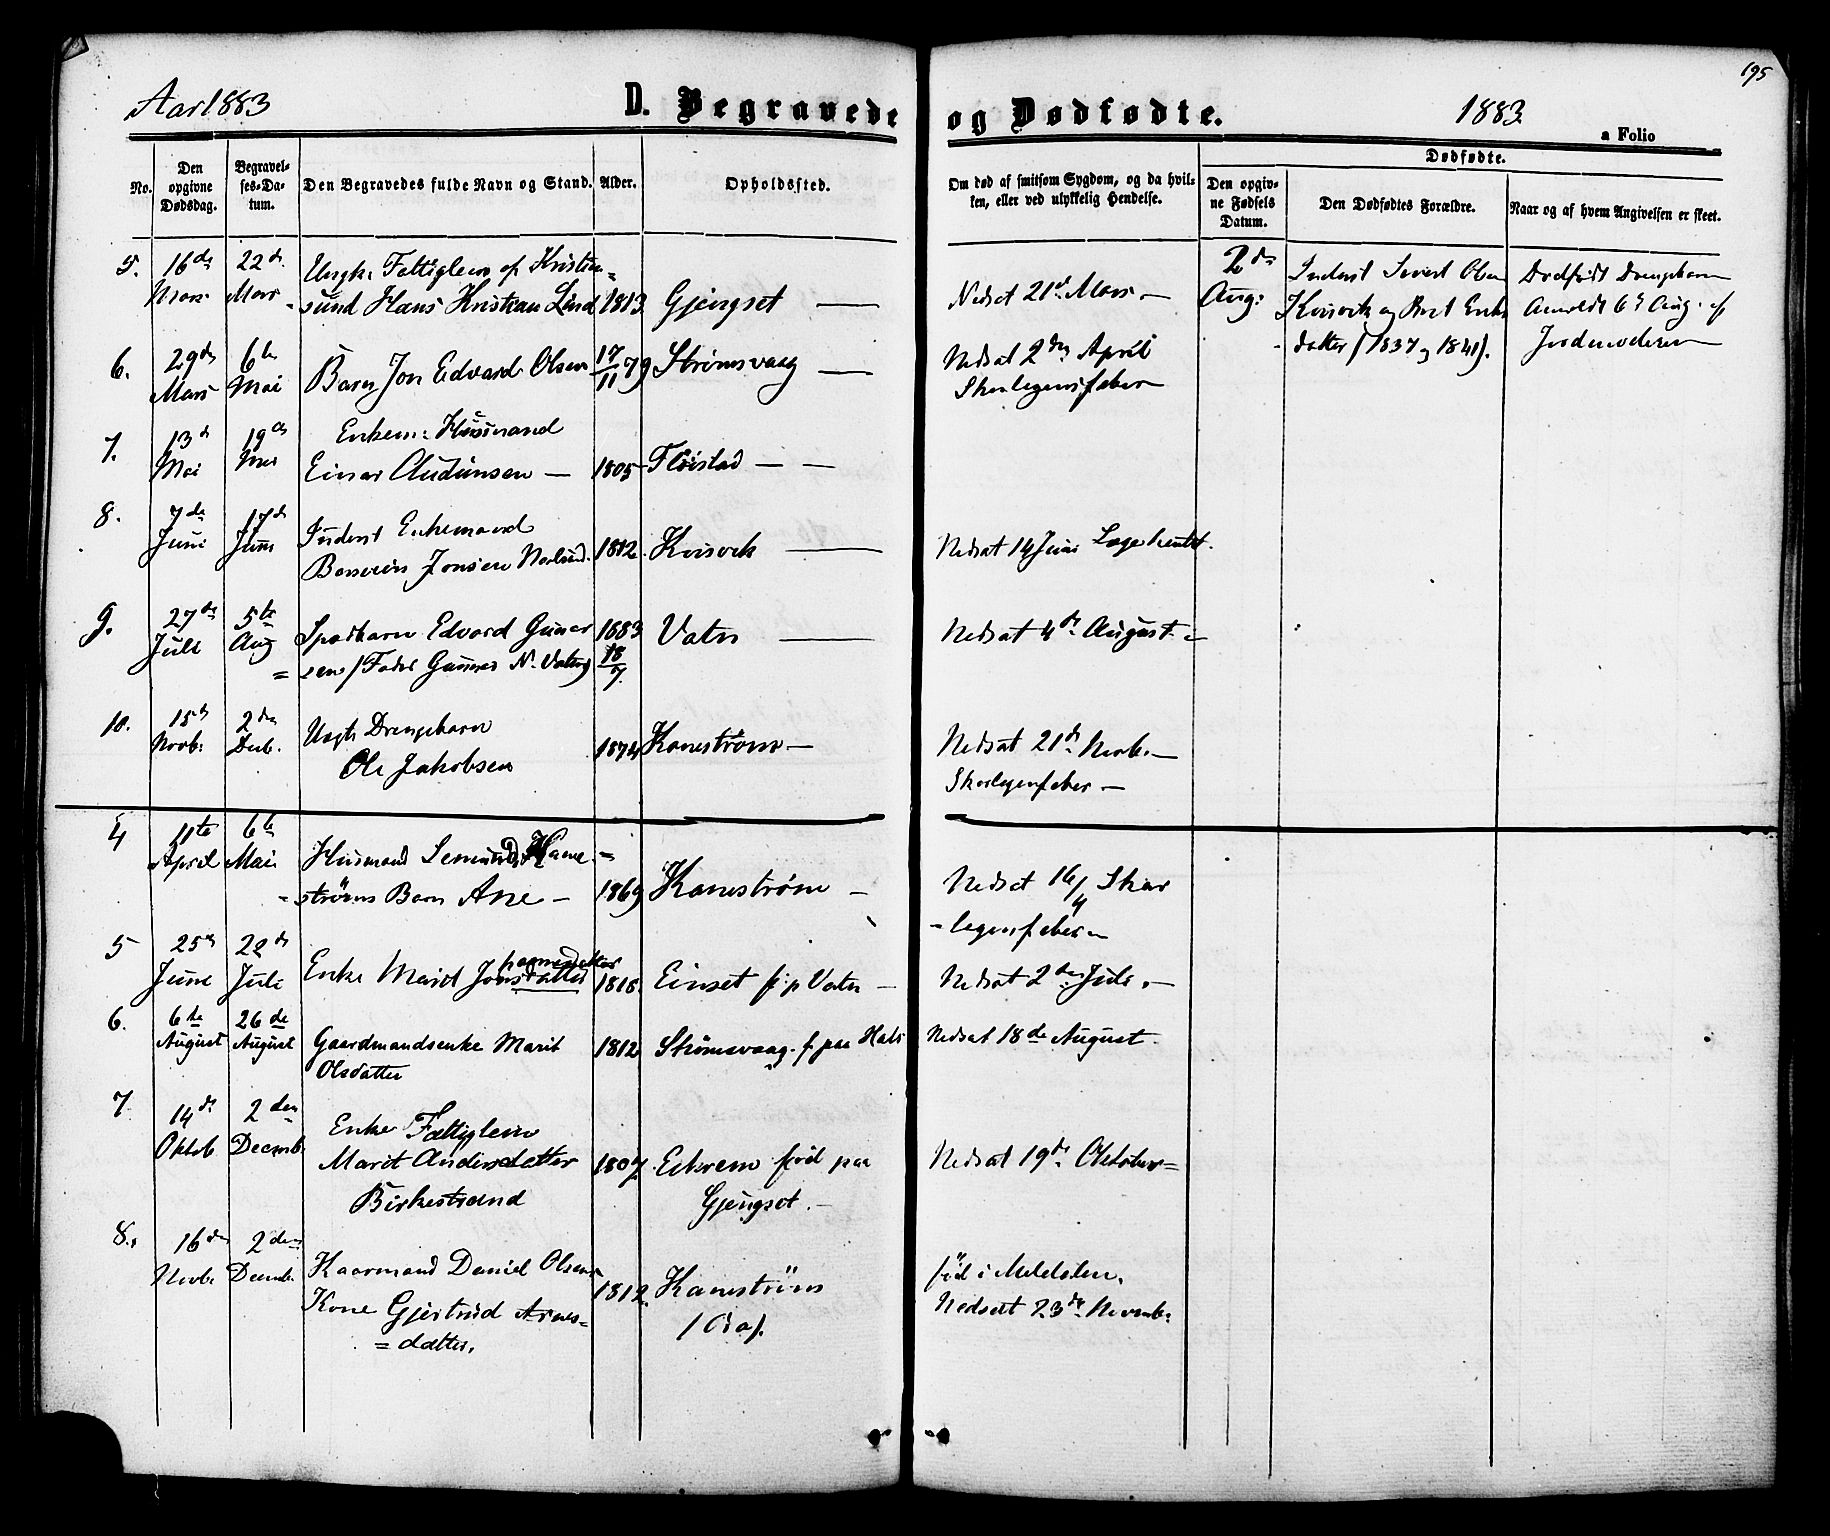 195
Aar 1883
D. Begravede og Dødfødte.
1883
a Folio
No.
Den opgivne Dødsdag.
Begravelses-Datum.
Den Begravedes fulde Navn og Stand.
Alder.
Opholdssted.
Om død af smitsom Sygdom, og da hvilken, eller ved ulykkelig Hendelse.
Dødfødte.
Den opgivne Fødsels Datum.
Den Dødfødtes Forældre.
Naar og af hvem Angivelsen er skeet.
5. 16de 22de Ungk. Fattiglem af Kristian=
Mars Mars sund Hans Kristian Lind 1813 Gjengset — Nedsat 21de Mars —
2den Inderst Sivert Olsen Dødfødt Drengebarn
Aug: Kvisvik og Beret Eriks Anmeldt 6te Aug. af
datter (1837 og 1841). Jordemoderen
6. 29de 6te Barn Jon Edvard Olsen 17/11 79 Strømsvaag — Nedsat 2den April
Mars Mai Skarlagensfeber —
7. 13de 19de Enkem: Husmand
Mai Mai Einar Audunsen — 1805 Fløistad — —
8. 7de 17de Inderst Enkemand
Juni Juni Jonsen 1812. Kvisvik — Nedsat 14 Juni
9. 27de 5te Spædbarn Edvard Gunnar 1883 Vatn — Nedsat 4de August. —
Juli Aug = sen (Fader Gunnar N. Vatn) 18/7.
10. 15de 2den Ungk. Drengebarn
Novb: Decb. Ole Jakobsen 1874 Kanestrøm — Nedsat 21de Novb. —
Skarlagensfeber —
4 11te 6te Husmand Kane =
April Mai = strøms Barn Ane — 1869 Kanestrøm — Nedsat 16/4 Skar
- lagensfeber —
5 25de 22de Enke Marit Jonsdatter 1818. Einset f: p Vatn — Nedsat 2den Juli. —
June Juli
6. 6te 26de Gaardmandsenke Marit 1812 Strømsvaag. f. paa Hals Nedsat 18de August.
August August Olsdatter
7 14de 2den Enke Fattiglem
Oktob Decemb. Marit Andersdatter 1807. Eikrem fød paa Nedsat 19de Oktober =
Birkestrand Gjengset. —
8. 16de 2den Kaarmand Daniel Olsens 1812. Kanestrøm fød i Meldalen.
Novb. Decemb. Kone Gjertrud Arnes= (Øra). Nedsatt 23de Novemb.
= datter.